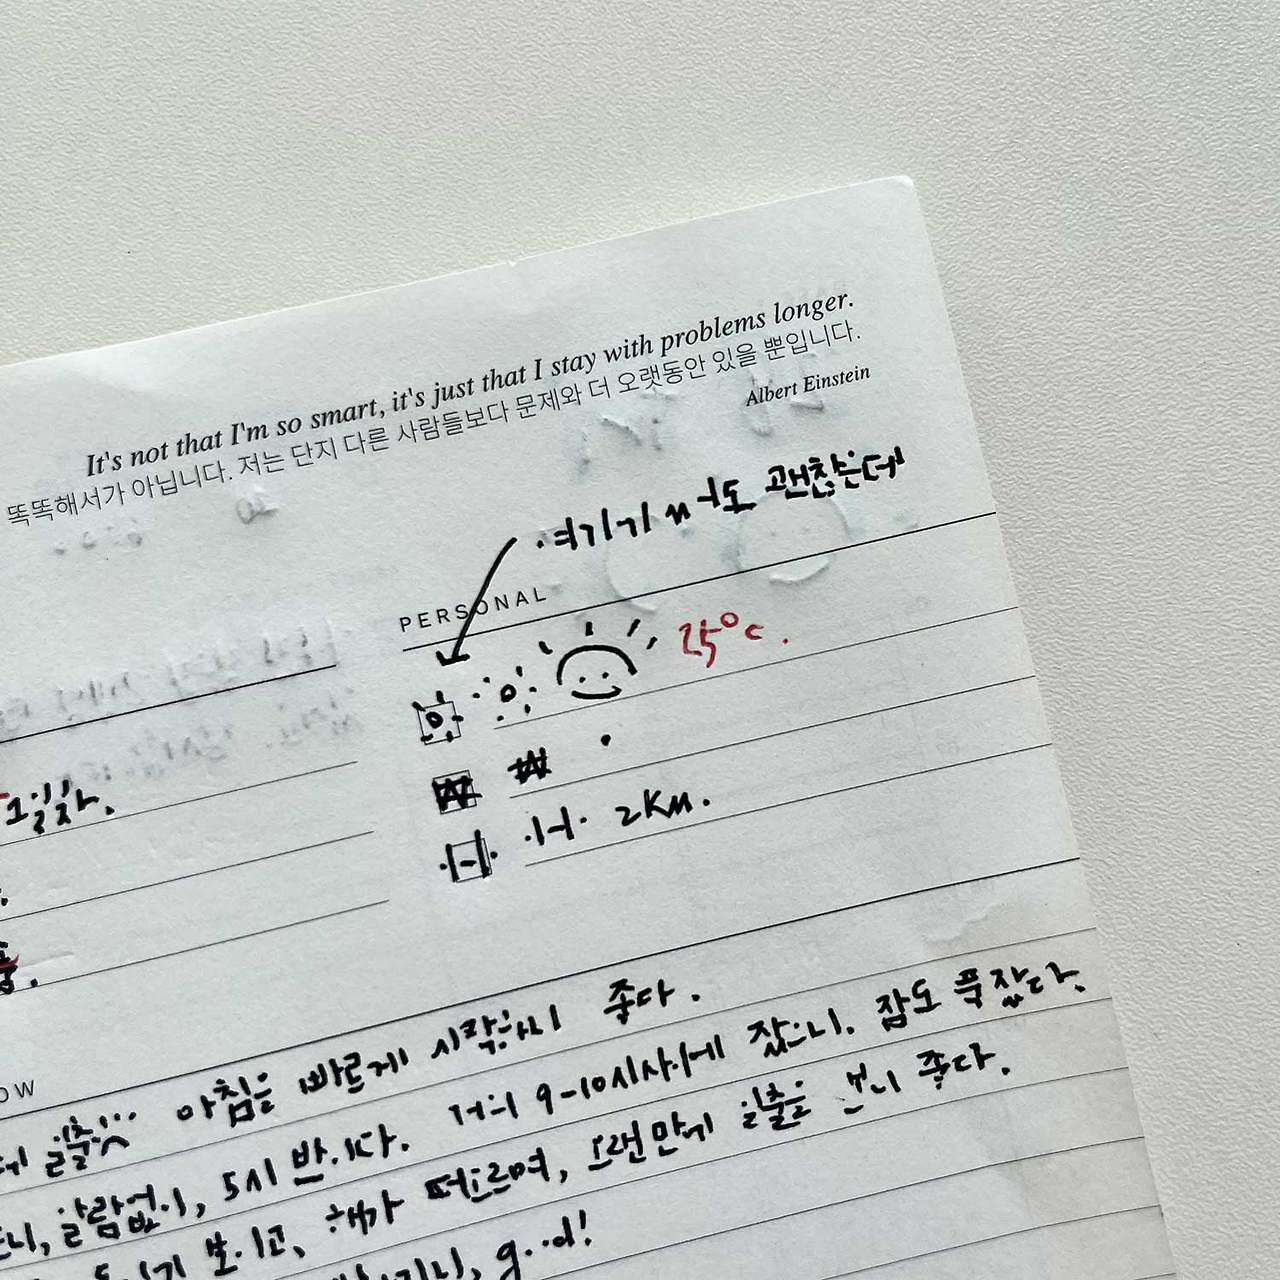 It's not that I'm so smart, it's just that I stay with problems longer.
똑똑해서가 아닙니다. 저는 단지 다른 사람들보다 문제와 더 오랫동안 있을 뿐입니다.
Albert Einstein
여기까지도 괜찮은데
PERSONAL
25°C.
₩ ₩
2KM.
OW
아침을 빠르게 시작하니 좋다.
알람없이, 5시 반이다. 거의 9-10시사이에 잤으니. 잠도 푹잤다.
보이고, 해가 떠오르며, 오랜만에 일출을 보니 좋다.
good!